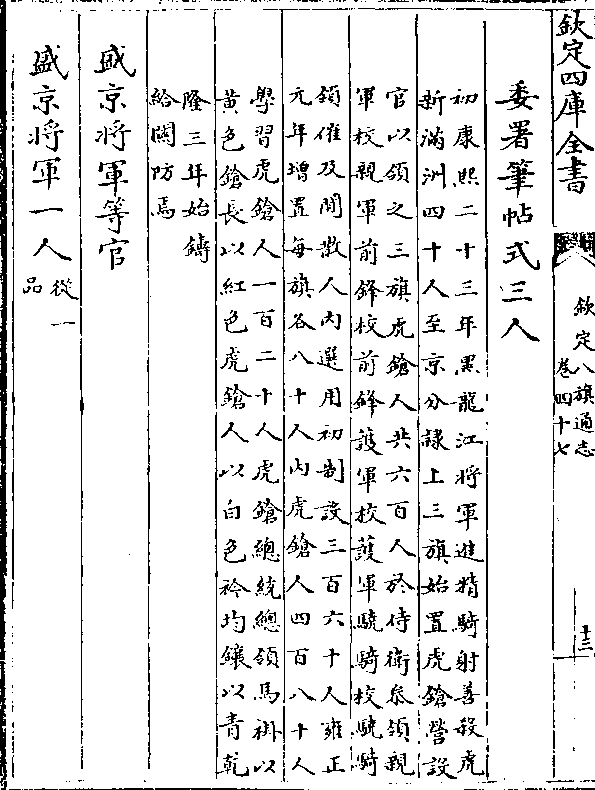 欽定四庫全書
欽定八旗通志
卷四十七
十二
委署筆帖式三人
初康熙二十三年黑龍江將軍進精騎射善殺虎
新滿洲四十人至京分隸上三旗始置虎鎗營設
官以領之三旗虎鎗人共六百人於侍衛叅領親
軍校親軍前鋒校前鋒護軍校護軍驍騎校驍騎
領催及閒散人內選用初制設三百六十人雍正
元年增置每旗各八十人內虎鎗人四百八十人
學習虎鎗人一百二十人虎鎗總統總領馬褂以
黃色鎗長以紅色虎鎗人以白色衿均鑲以青乾
隆三年始鑄
給關防焉
盛京將軍等官
盛京將軍一人從一
品